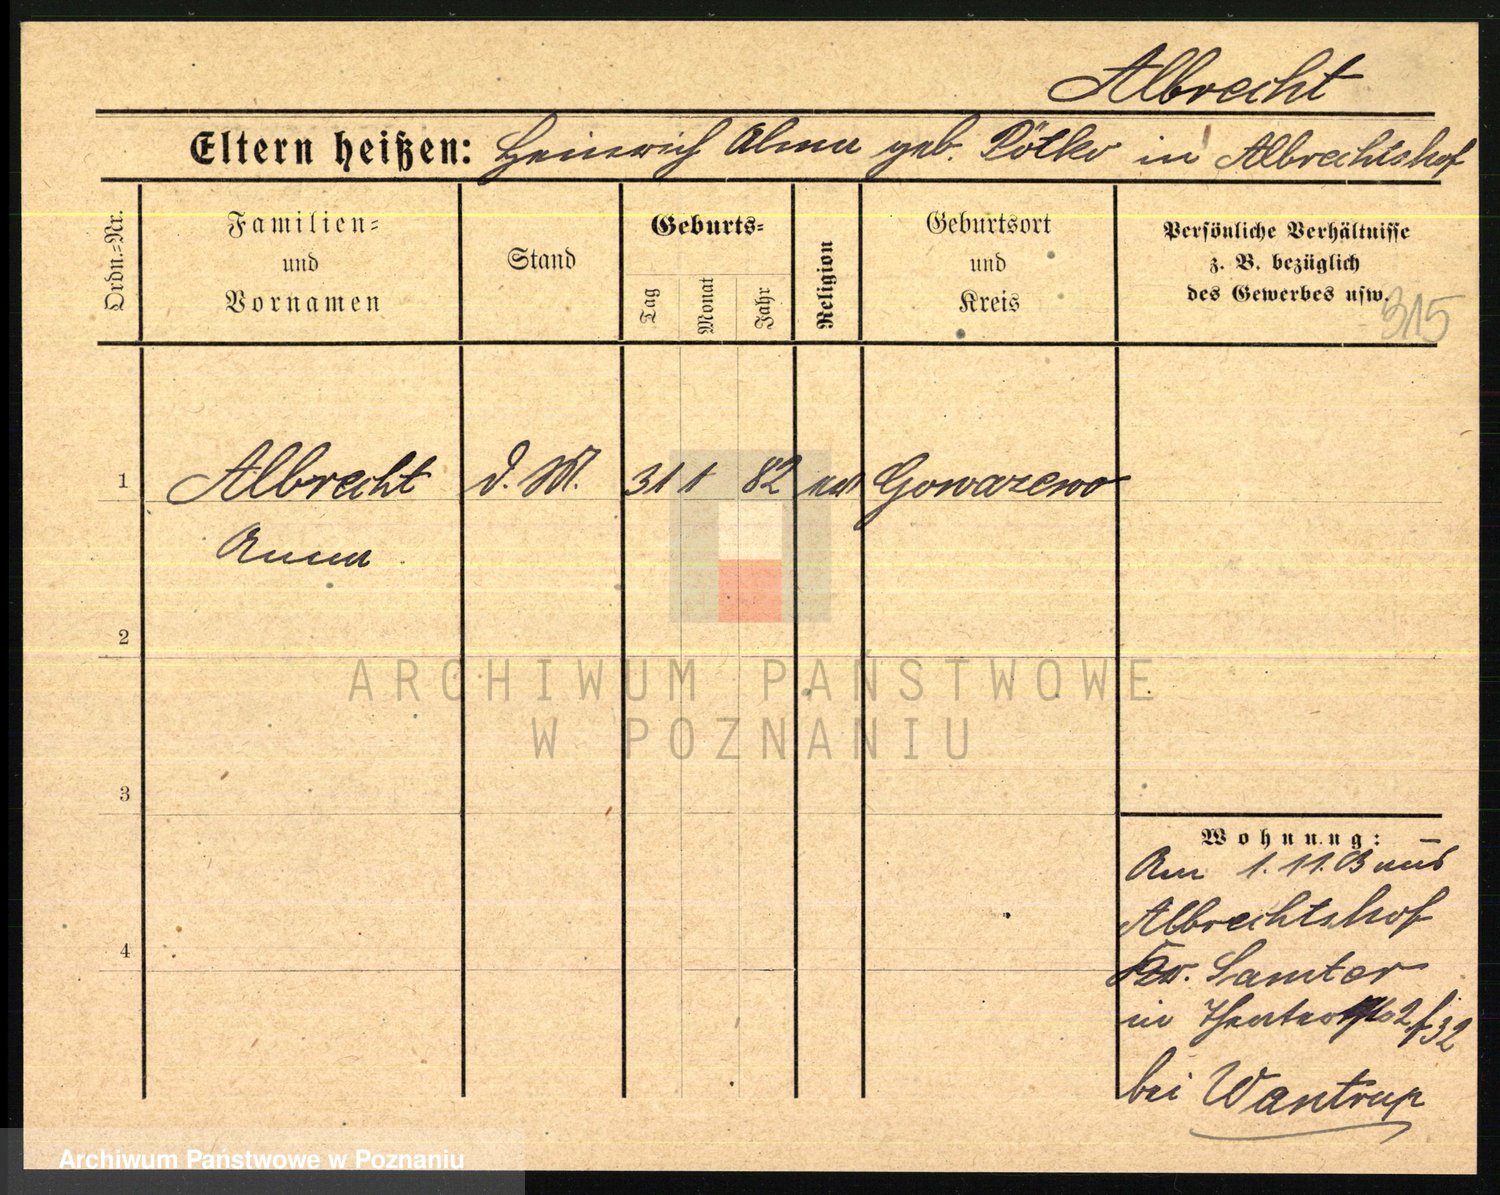 Albrecht
Eltern heißen: Heinrich Alma geb. Pötke in Albrechtshof
Ordn.-Nr.
Familien-
und
Vornamen
Stand
Geburts-
Tag
Monat
Jahr
Religion
Geburtsort
und
Kreis
Persönliche Verhältnisse
z. B. bezüglich
des Gewerbes usw.
315
1 Albrecht d. M. 31 1 82 ev Gowarzewo
Anna
2
ARCHIWUM PAŃSTWOWE
W POZNANIU
3
Wohnung:
Am 1.11.03 aus
Albrechtshof
4
Kr. Samter
in 2 / 32
bei Wantrup
Archiwum Państwowe w Poznaniu